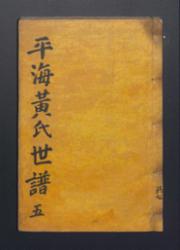 平海黃氏世譜 五